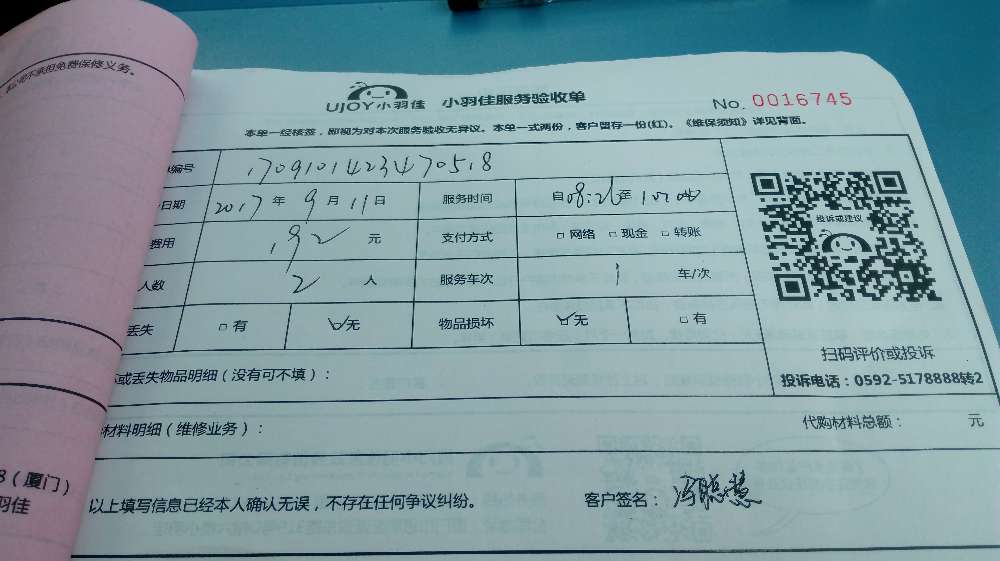 不承担免费保修义务。
UJOY小羽佳 小羽佳服务验收单 No. 0016745
本单一经核签，即视为对本次服务验收无异议。本单一式两份，客户留存一份(红)。《维保须知》详见背面。
编号 1709101423470518
日期 2017年9月11日 服务时间 自08:26至
费用 192元 支付方式 □网络 □现金 □转账
人数 2人 服务车次 1车/次
丢失 □有 ☑无 物品损坏 ☑无 □有
投诉或建议
扫码评价或投诉
投诉电话：0592-5178888转2
或丢失物品明细（没有可不填）：
材料明细（维修业务）： 代购材料总额： 元
（厦门）
羽佳
以上填写信息已经本人确认无误，不存在任何争议纠纷。 客户签名：冯聪慧